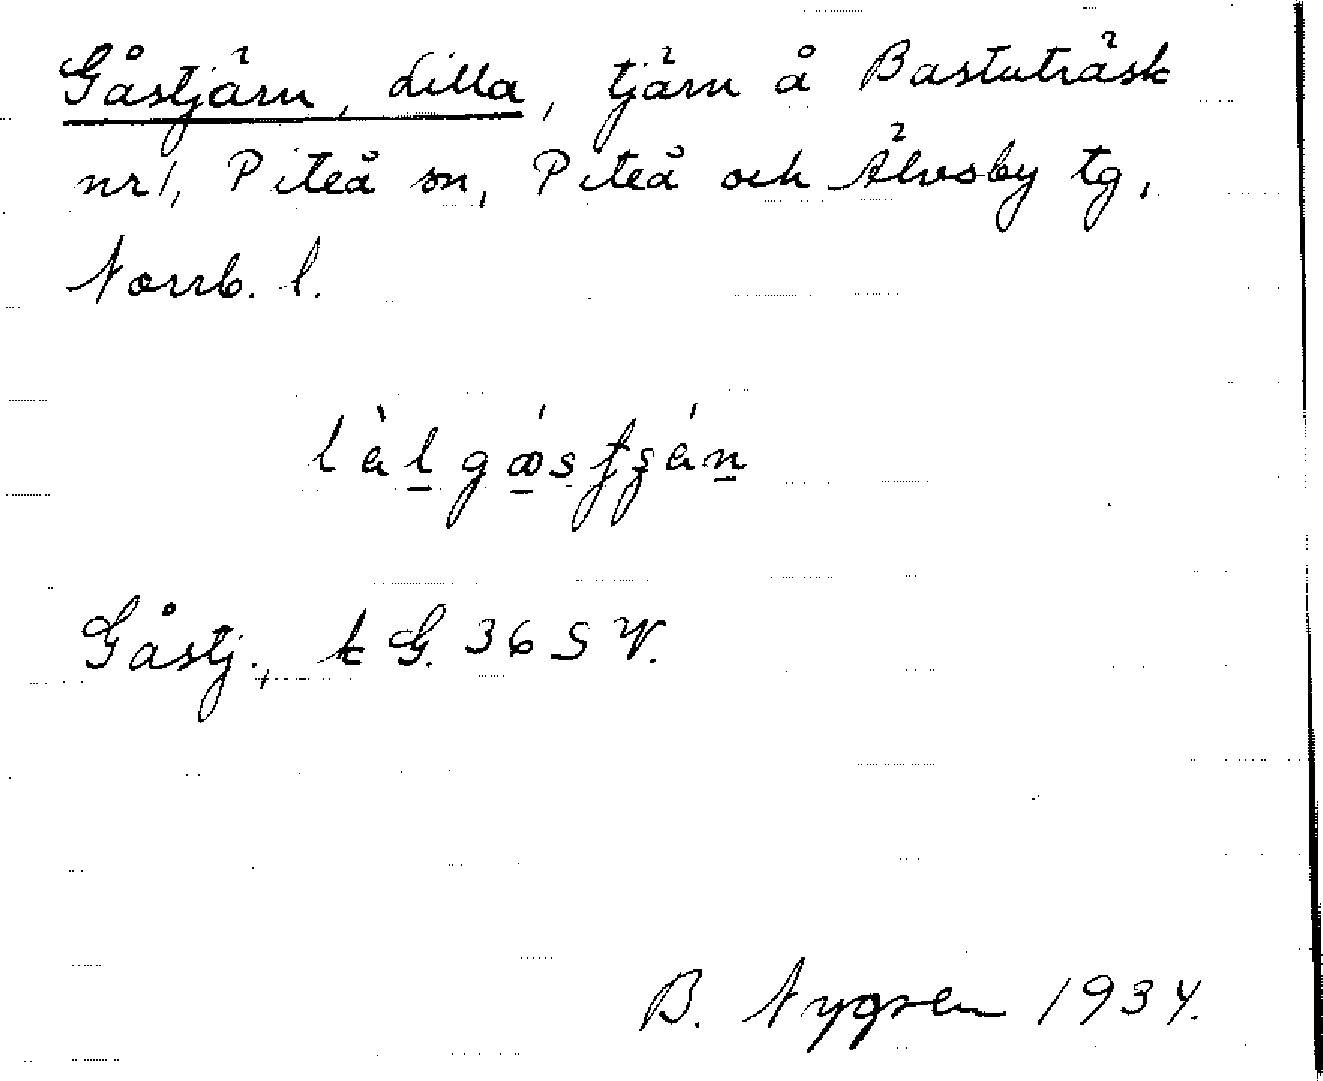 Gåstjärn, Lilla, tjärn å Bastuträsk
nr 1, Piteå sn, Piteå och Älvsby tg,
Norrb. l.
Gåstj., k G. 36 SV.
B. Nygren 1934.